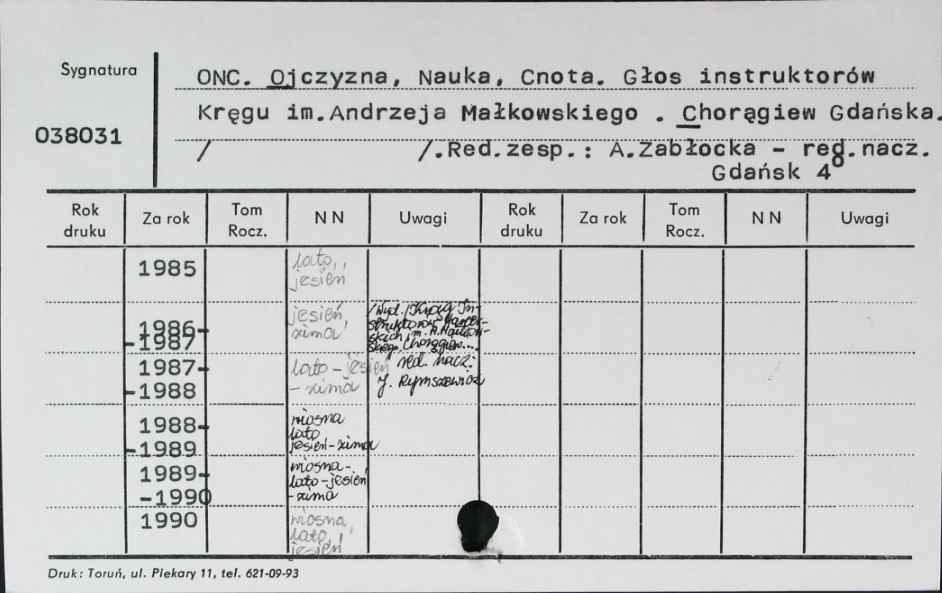 Sygnatura
038031
ONC. Ojczyzna, Nauka, Cnota. Głos instruktorów
Kręgu im.Andrzeja Małkowskiego . Chorągiew Gdańska.
/ /.Red.zesp.: A.Zabłocka - red.nacz.
Gdańsk 4o
Rok druku Za rok Tom Rocz. N N Uwagi Rok druku Za rok Tom Rocz. N N Uwagi
1985 lato,
jesień
1986- jesień,
-1987 zima
/Wyd./Krąg In-
struktorów Harcer-
skich im. A. Małkow-
skiego. Chorągiew...
1987- lato - jesień red. nacz.
-1988 - zima J. Rymszewicz
1988- wiosna
lato
-1989 jesień-zima
1989- wiosna-
lato-jesień
-1990 -zima
1990 wiosna,
lato,
jesień
Druk: Toruń, ul. Piekary 11, tel. 621-09-93